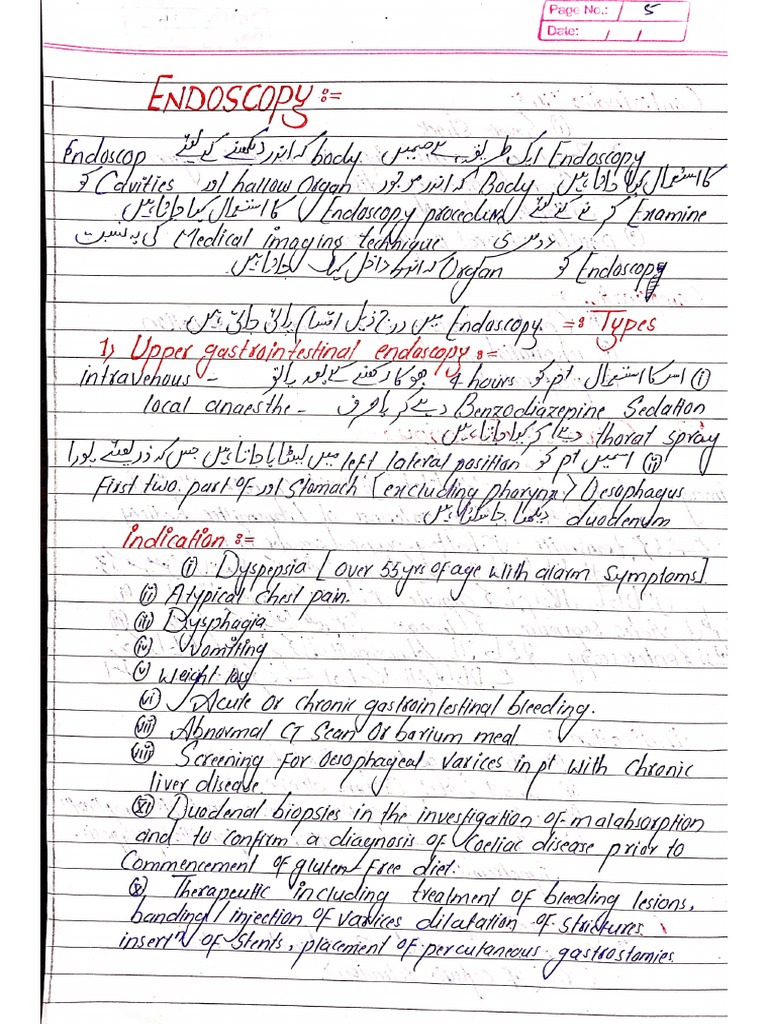 Page No.: 5
Date: / /
ENDOSCOPY :=
Endoscopy ایک طریقہ ہے جسمیں body کہ اندر دیکھنے کے لیئے Endoscop
کا استعمال کیا جاتا ہیں Body کہ اندر موجود hallow Organ اور Cavities کو
Examine کرنے کے لیئے Endoscopy procedure کا استعمال کیا جاتا ہیں
دوسری Medical imaging technique کی بہ نسبت
Endoscopy کو Organ کہ اندر داخل کیا جاتا ہیں
Types := Endoscopy میں درج ذیل اقسام پائی جاتی ہیں
1) Upper gastrointestinal endoscopy :=
(i) اسکا استعمال pt کو 4 hours بھوکا رکھنے کے بعد یا تو intravenous -
Benzodiazepine Sedation دے کر یا صرف local anaesthe -
thorat spray دیا کر کیا جاتا ہیں
(ii) اسمیں pt کو left lateral position میں لیٹایا جاتا ہیں جس کہ ذریعئے پورا
Oesophagus (excluding pharynx) Stomach اور First two part of
duodenum دیکھا جا سکتا ہیں
indication :=
(i) Dyspepsia [over 55yrs of age with alarm Symptoms]
(ii) Atypical chest pain.
(iii) Dysphagia
(iv) vomiting
(v) weight loss
(vi) Acute Or chronic gastrointestinal bleeding.
(vii) Abnormal CT Scan Or barium meal
(viii) Screening for Oesophageal varices in pt with chronic
liver disease
(xi) Duodenal biopsies in the investigation of malabsorption
and to confirm a diagnosis of Coeliac disease prior to
Commencement of gluten-free diet.
(x) Therapeutic including treatment of bleeding lesions,
banding/injection of varices dilatation of strictures
insertⁿ of stents, placement of percutaneous gastrostomies.